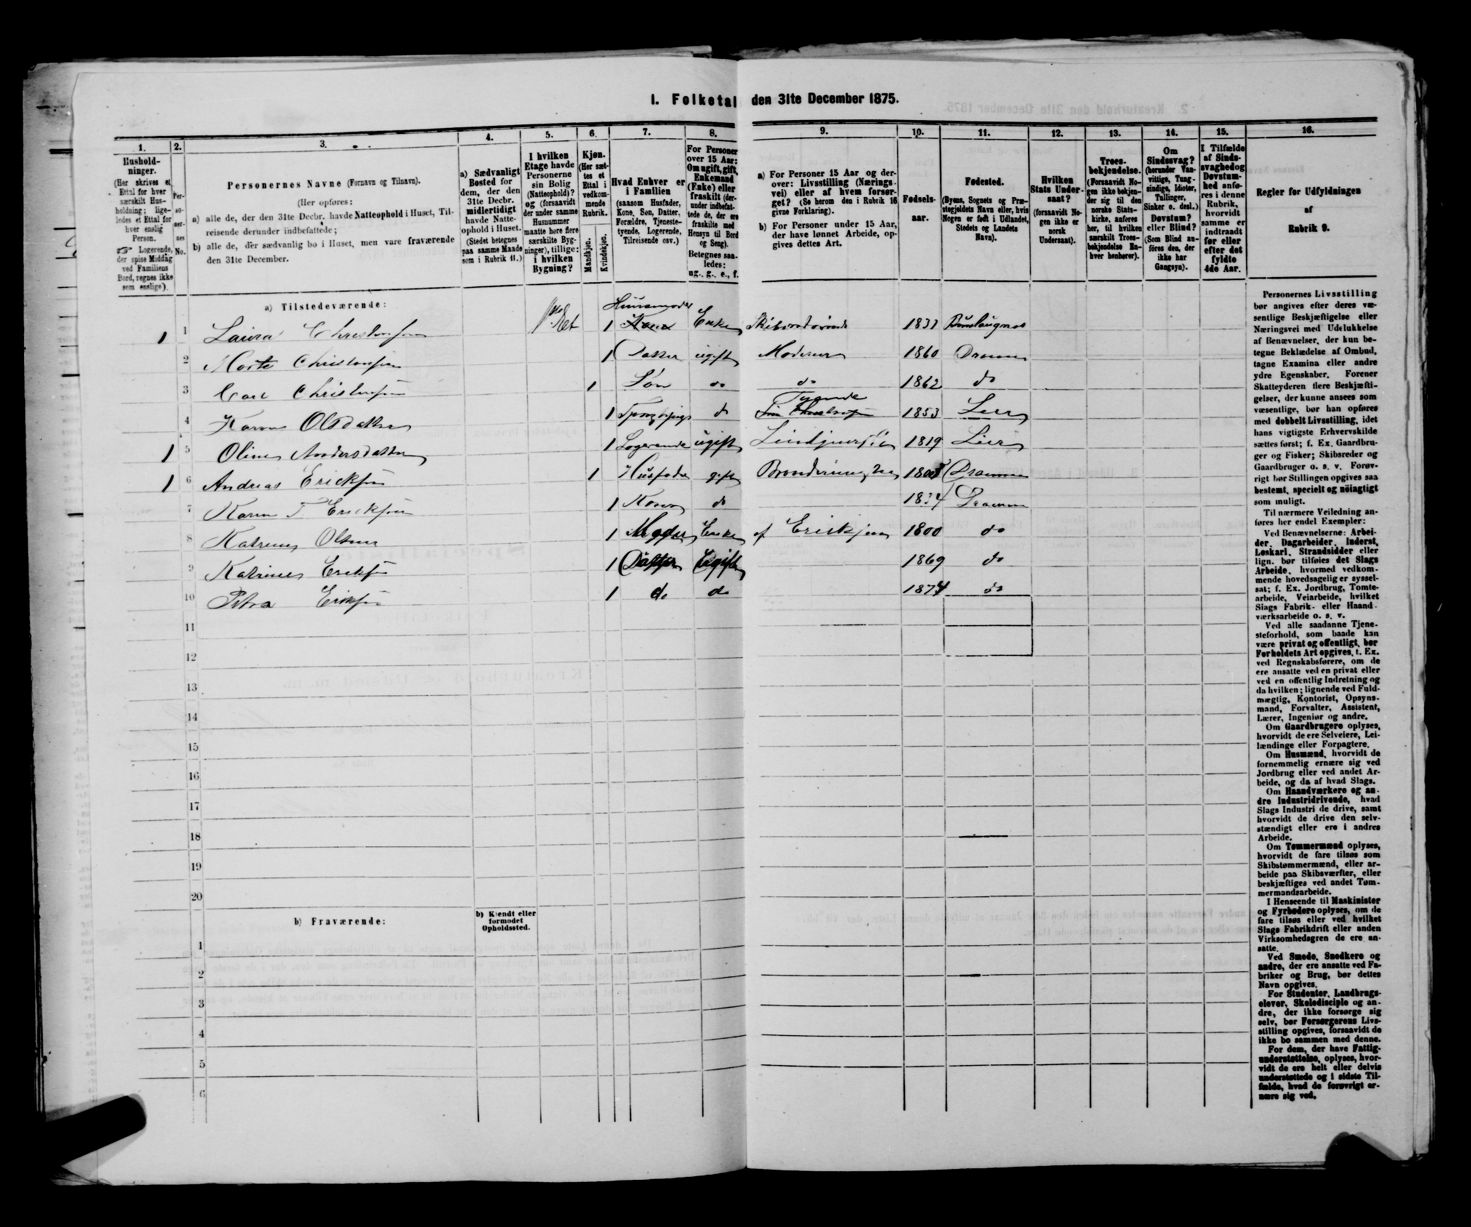 1. Folketal den 31te December 1875.
1.
Husholdninger.
(Her skrives et Ettal for hver særskilt Husholdning; ligeledes et Ettal for hver enslig Person.
☞ Logerende, der spise Middag ved Familiens Bord, regnes ikke som enslige).
2.
Personernes No.
3.
Personernes Navne (Fornavn og Tilnavn).
(Her opføres:
a) alle de, der den 31te Decbr. havde Natteophold i Huset, Tilreisende derunder indbefattede;
b) alle de, der sædvanlig bo i Huset, men vare fraværende den 31te December.
4.
a) Sædvanligt Bosted for dem, der den 31te Decbr. midlertidigt havde Natteophold i Huset.
(Stedet betegnes paa samme Maade som i Rubrik 11.)
5.
I hvilken Etage havde Personerne sin Bolig (Natteophold)? og (forsaavidt der under samme Husnummer maatte høre flere særskilte Bygninger), tillige: i hvilken Bygning?
6.
Kjøn.
(Her sættes et Ettal i vedkommende Rubrik.
Mandkjøn.
Kvindekjøn.
7.
Hvad Enhver er i Familien
(saasom Husfader, Kone, Søn, Datter, Forældre, Tjenestetyende, Logerende, Tilreisende osv.)
8.
For Personer over 15 Aar: Om ugift, gift, Enkemand (Enke) eller fraskilt (derunder indbefattede de, der ere fraskilte med Hensyn til Bord og Seng).
Betegnes saaledes: ug., g., e., f.
9.
a) For Personer 15 Aar og derover: Livsstilling (Næringsvei) eller af hvem forsørget? (Se herom den i Rubrik 16 givne Forklaring).
b) For Personer under 15 Aar, der have lønnet Arbeide, opgives dettes Art.
10.
Fødselsaar.
11.
Fødested.
(Byens, Sognets og Præstegjeldets Navn eller, hvis Nogen er født i Udlandet, Stedets og Landets Navn).
12.
Hvilken Stats Undersaat?
(forsaavidt Nogen ikke er norsk Undersaat).
13.
Troesbekjendelse.
(Forsaavidt Nogen ikke bekjender sig til den norske Statskirke, anføres her, til hvilken særskilt Troesbekjendelse Enhver henhører).
14.
Om Sindssvag? (herunder Vanvittige, Tungsindige, Idioter, Tullinger, Sinker o. desl.).
Døvstum? eller Blind?
(Som Blind anføres den, der ikke har Gangsyn).
15.
I Tilfælde af Sindssvaghed og Døvstumhed anføres i denne Rubrik, hvorvidt samme er indtraadt før eller efter det fyldte 4de Aar.
16.
Regler for Udfyldningen af Rubrik 9.
a) Tilstedeværende:
1 1 Laura Christensen 1 Husmoder Enke 1832
2 Marte Christensen 1 Datter ugift Moderen 1860 Drammen
3 Carl Christensen 1 Søn do do 1862 do
4 Karen Olsdatter 1 do Tyende 1853 Lier
1 5 Oline Andersdatter 1 Logerende ugift 1819 Lier
1 6 Andreas Ericksen 1 Husfader gift Drammen
7 Karen T Ericksen 1 Kone do 1834 Drammen
8 Katrine Olsen 1 Moder Enke af Erickjen 1800 do
9 Katrine Ericksen 1 Datter Ugift 1869 do
10 Petra Ericksen 1 do do 1874 do
11
12
13
14
15
16
17
18
19
20
b) Fraværende:
b) Kjendt eller formodet Opholdssted.
1
2
3
4
5
6
Personernes Livsstilling
bør angives efter deres væ-
sentlige Beskjæftigelse eller
Næringsvei med Udelukkelse
af Benævnelser, der kun be-
tegne Beklædelse af Ombud,
tagne Examina eller andre
ydre Egenskaber. Forener
Skatteyderen flere Beskjæfti-
gelser, der kunne ansees som
væsentlige, bør han opføres
med dobbelt Livsstilling, idet
hans vigtigste Erhvervskilde
sættes først; f. Ex. Gaardbru-
ger og Fisker; Skibsreder og
Gaardbruger o. s. v. Forøv-
rigt bør Stillingen opgives saa
bestemt, specielt og nöiagtigt
som muligt.
Til nærmere Veiledning an-
føres her endel Exempler:
Ved Benævnelserne: Arbei-
der, Dagarbeider, Inderst,
Løskarl, Strandsidder eller
lign. bør tilføies det Slags
Arbeide, hvormed vedkom-
mende hovedsagelig er syssel-
sat; f. Ex. Jordbrug, Tomte-
arbeide, Veiarbeide, hvilket
Slags Fabrik- eller Haand-
værksarbeide o. s. v.
Ved alle saadanne Tjene-
steforhold, som baade kan
være privat og offentligt, bør
Forholdets Art opgives, t. Ex.
ved Regnskabsførere, om de
ere ansatte ved en privat eller
ved en offentlig Indretning og
da hvilken; lignende ved Fuld-
mægtig, Kontorist, Opsyns-
mand, Forvalter, Assistent,
Lærer, Ingeniør og andre.
Om Gaardbrugere oplyses,
hvorvidt de ere Selveiere, Lei-
lændinge eller Forpagtere.
Om Husmænd, hvorvidt de
fornemmelig ernære sig ved
Jordbrug eller ved andet Ar-
beide, og da af hvad Slags.
Om Haandværkere og an-
dre Industridrivende, hvad
Slags Industri de drive, samt
hvorvidt de drive den selv-
stændigt eller ere i andres
Arbeide.
Om Tømmermænd oplyses,
hvorvidt de fare tilsøs som
Skibstømmermænd, eller ar-
beide paa Skibsværfter, eller
beskjæftiges ved andet Tøm-
mermandsarbeide.
I Henseende til Maskinister
og Fyrbødere oplyses, om de
fare tilsøs eller ved hvilket
Slags Fabrikdrift eller anden
Virksomhedsgren de ere an-
satte.
Ved Smede, Snedkere og
andre, der ere ansatte ved Fa-
briker og Brug, bør dettes
Navn opgives.
For Studenter, Landbrugs-
elever, Skoledisciple og an-
dre, der ikke forsørge sig
selv, bør Forsørgerens Livs-
stilling opgives, forsaavidt de
ikke bo sammen med denne.
For dem, der have Fattig-
understøttelse, oplyses, hvor-
vidt de ere helt eller delvis
understøttede og i sidste Til-
fælde, hvad de forøvrigt er-
nære sig ved.